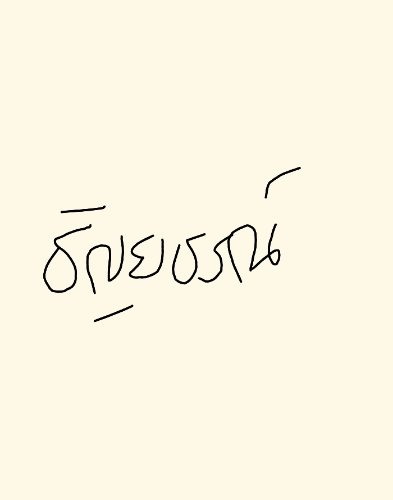 ธัญยธรณ์